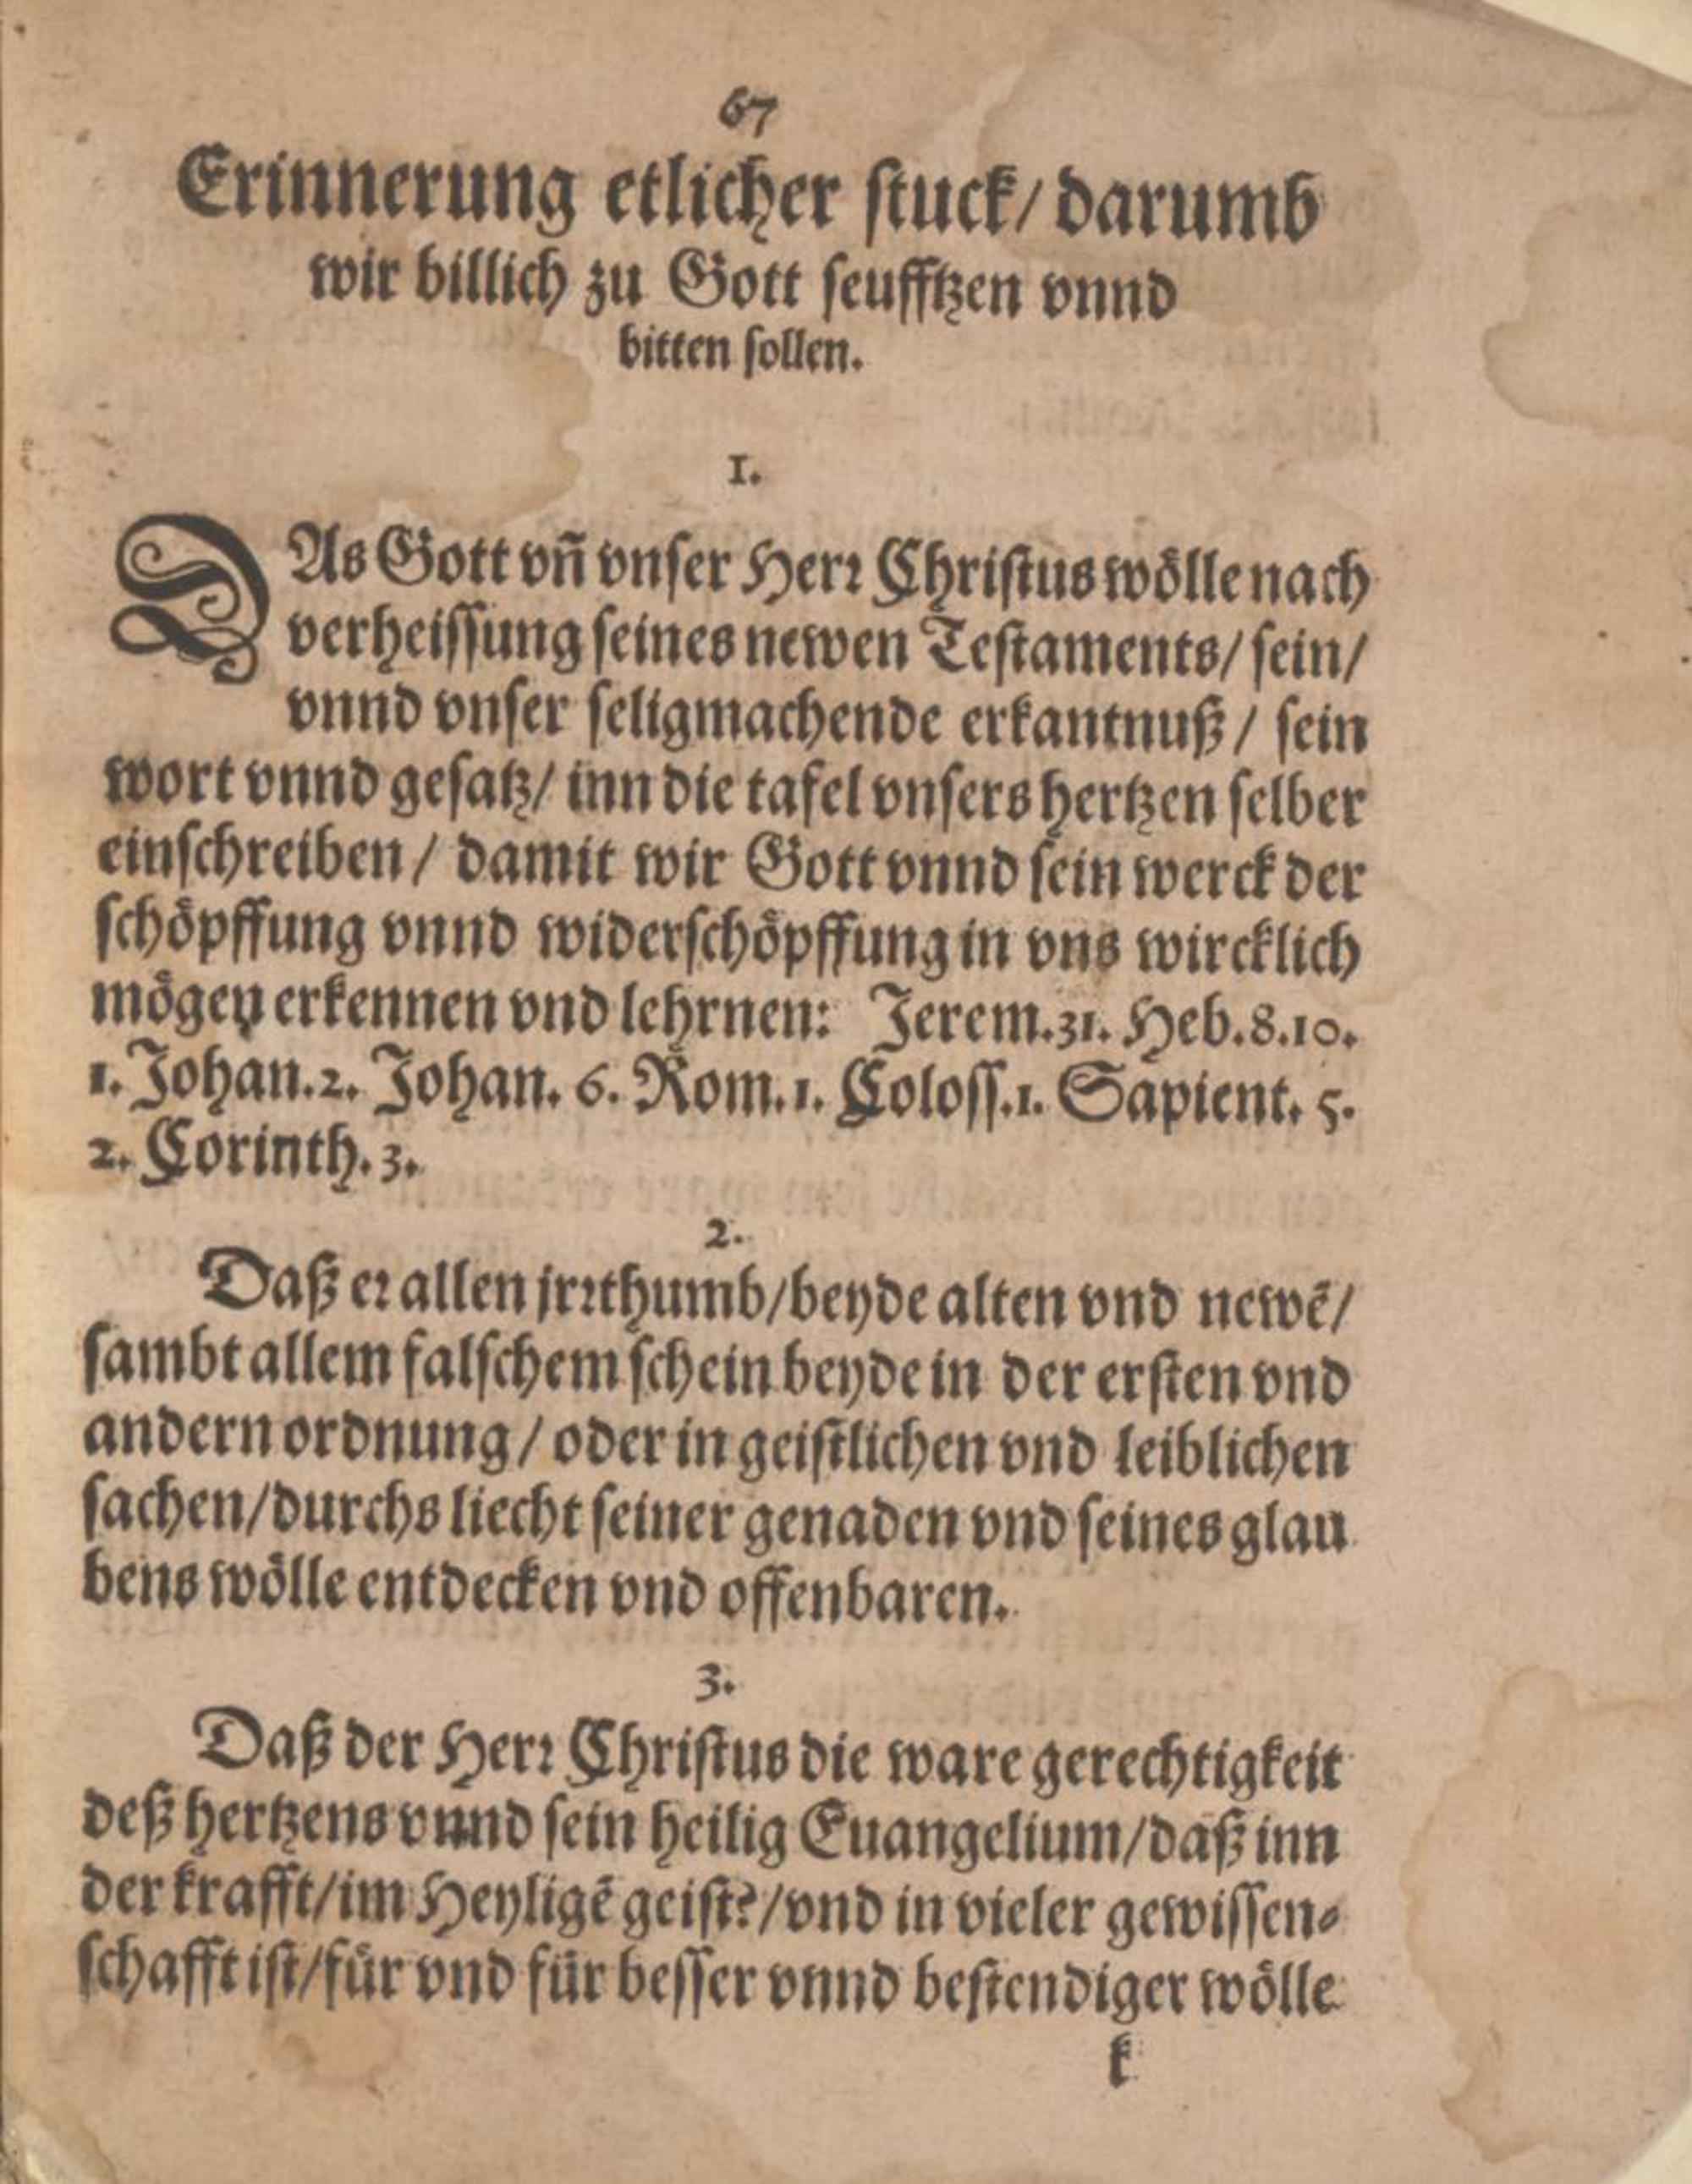 67
Erinnerung etlicher stuck/ darumb
wir billich zu Gott seufftzen vnnd
bitten sollen.
1.
DAs Gott vñ vnser Herr Christus wölle nach
verheissung seines newen Testaments/ sein/
vnnd vnser seligmachende erkantnuß/ sein
wort vnnd gesatz/ inn die tafel vnsers hertzen selber
einschreiben/ damit wir Gott vnnd sein werck der
schöpffung vnnd widerschöpffung in vns wircklich
mögen erkennen vnd lehrnen: Jerem.31. Heb.8.10.
1. Johan.2. Johan. 6. Rom.1. Coloss.1. Sapient. 5.
2. Corinth.3.
2.
Daß er allen jrrthumb/beyde alten vnd newē/
sambt allem falschem schein beyde in der ersten vnd
andern ordnung/ oder in geistlichen vnd leiblichen
sachen/durchs liecht seiner genaden vnd seines glau
bens wölle entdecken vnd offenbaren.
3.
Daß der Herr Christus die ware gerechtigkeit
deß hertzens vnnd sein heilig Euangelium/daß inn
der krafft/im Heyligē geist?/vnd in vieler gewissen-
schafft ist/für vnd für besser vnnd bestendiger wölle
k